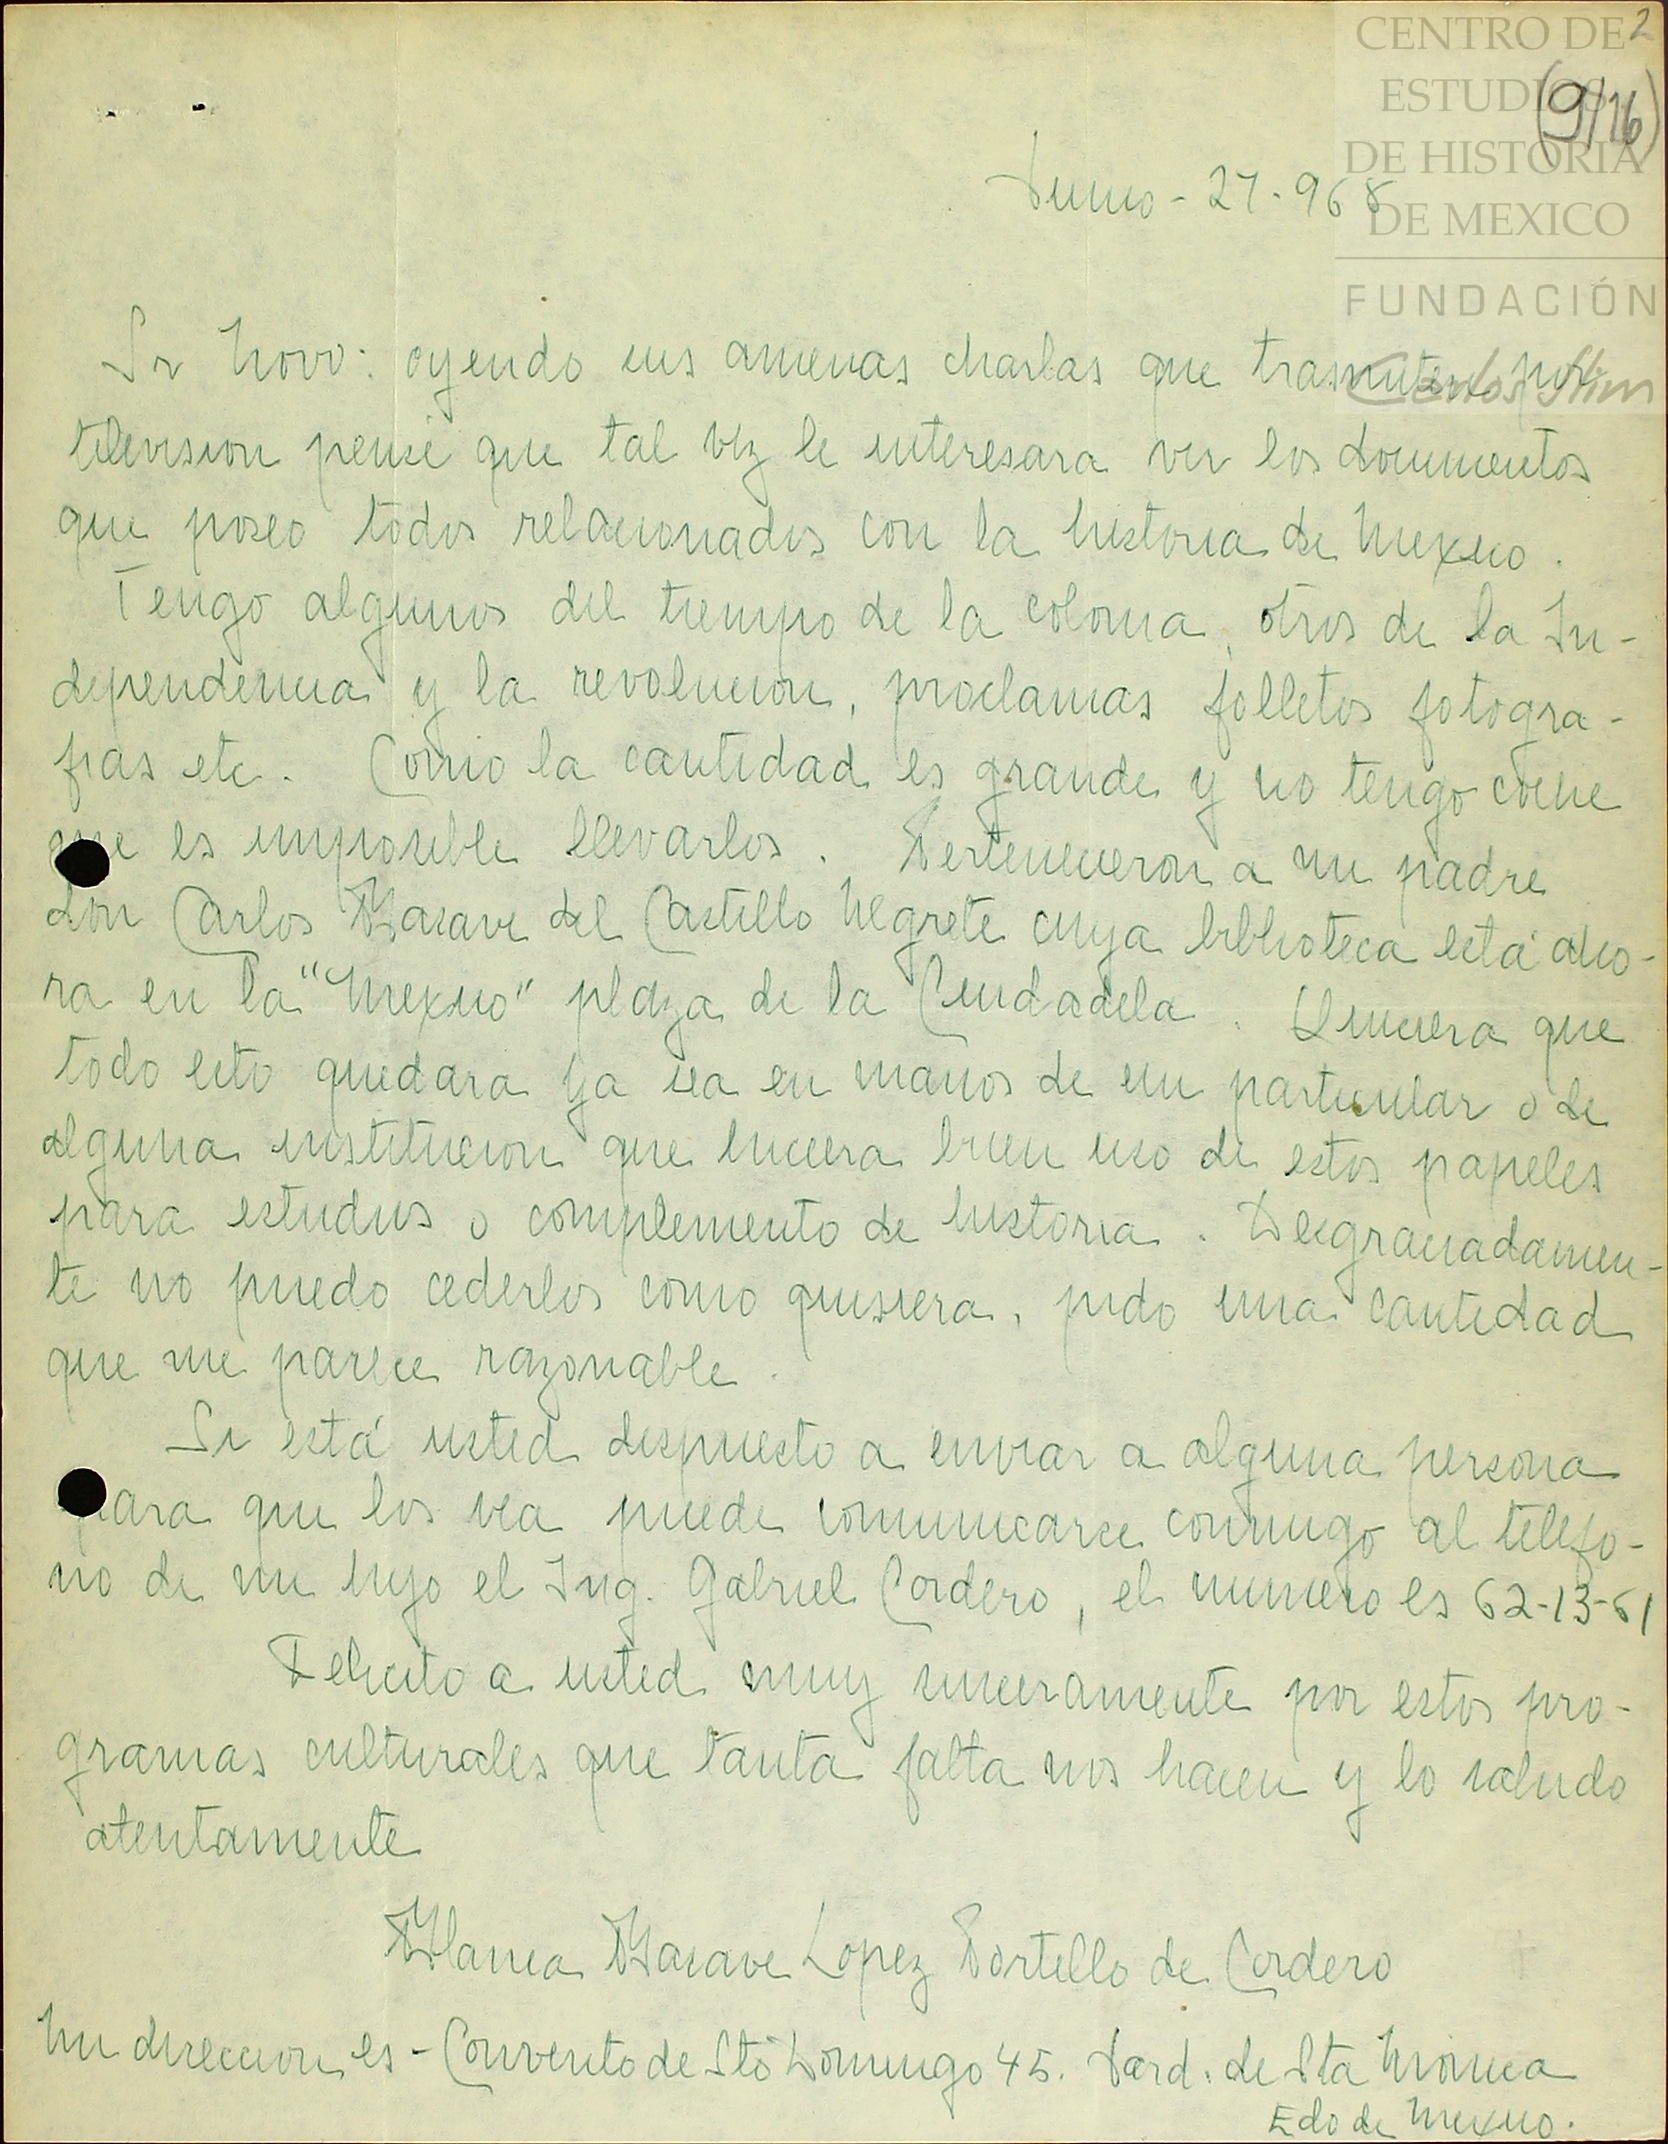 CENTRO DE
ESTUDIOS
DE HISTORIA
DE MEXICO
FUNDACIÓN
Carlos Slim
2
(9/16)
Junio - 27 - 968
Sr Novo: oyendo sus amenas charlas que trasmiten por
television pensé que tal vez le interesara ver los documentos
que poseo todos relacionados con la historia de Mexico.
Tengo algunos del tiempo de la colonia, otros de la In-
dependencia y la revolucion, proclamas folletos fotogra-
fias etc. Como la cantidad es grande y no tengo coche
que es imposible llevarlos. Pertenecieron a mi padre
don Carlos Basave del Castillo Negrete cuya biblioteca está aho-
ra en la "Mexico" plaza de la Ciudadela. Quisiera que
todo esto quedara ya sea en manos de un particular o de
alguna institucion que hiciera buen uso de estos papeles
para estudios o complemento de historia. Desgraciadamen-
te no puedo cederlos como quisiera, pido una cantidad
que me parece razonable.
Si está usted dispuesto a enviar a alguna persona
para que los vea puede comunicarse conmigo al telefo-
no de mi hijo el Ing. Gabriel Cordero, el numero es 62-13-61
Felicito a usted muy sinceramente por estos pro-
gramas culturales que tanta falta nos hacen y lo saludo
atentamente
Blanca Basave Lopez Portillo de Cordero
Mi direccion es - Convento de Sto Domingo 45. Jard. de Sta Monica
Edo de Mexico.